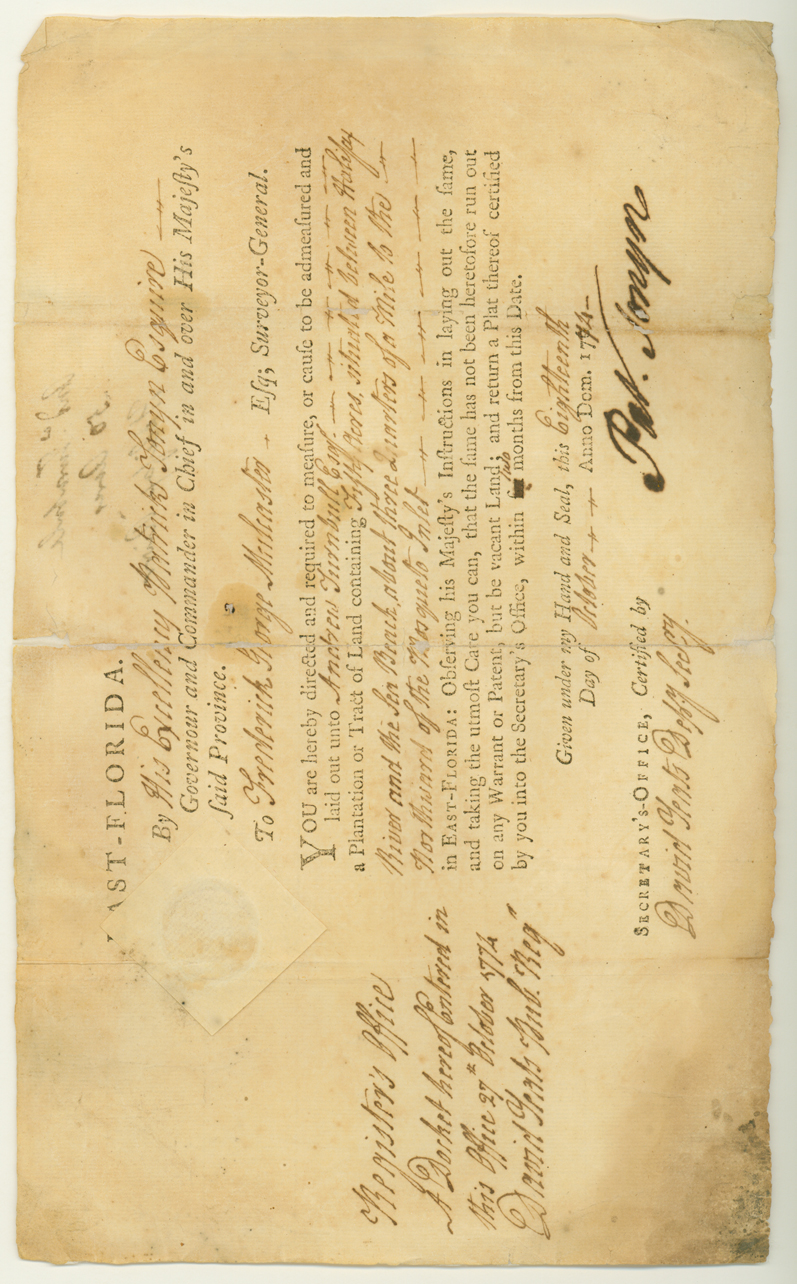 AST-FLORIDA.
By His Excellency Patrick Tonyn Esquire
Governour and Commander in Chief in and over His Majeſty's
ſaid Province.
To Frederick George Mulcaster Eſq; Surveyor-General.
YOU are hereby directed and required to meaſure, or cauſe to be admeaſured and
laid out unto Andrew Turnbull Esqr.
a Plantation or Tract of Land containing Fifty Acres, situated between Halifax
River and the Sea Beach, about three Quarters of a Mile to the
Northward of the Musqueto Inlet
in EAST-FLORIDA: Obſerving his Majeſty's Inſtructions in laying out the ſame,
and taking the utmoſt Care you can, that the ſame has not been heretofore run out
on any Warrant or Patent, but be vacant Land; and return a Plat thereof certified
by you into the Secretary's Office, within two months from this Date.
Given under my Hand and Seal, this Eighteenth
Day of October Anno Dom. 1774
Pat. Tonyn
SECRETARY'S-OFFICE, Certified by
David Yeats Depy. Secry.
Register's Office
A Docket hereof Entered in
this Office 27th October 1774
David Yeats Pub. Regr